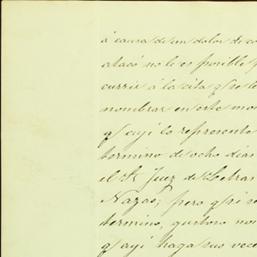 á causa de un dolor de co
atacó no le es posible p
currir á la cita q̃ se le
nombrar en este mo
q̃ aqi lo represente
termino de ocho dias
el Sr Juez de Letras
Nazas; pero q̃ si se
termino, gustoso no
q̃ aqi haga sus vece